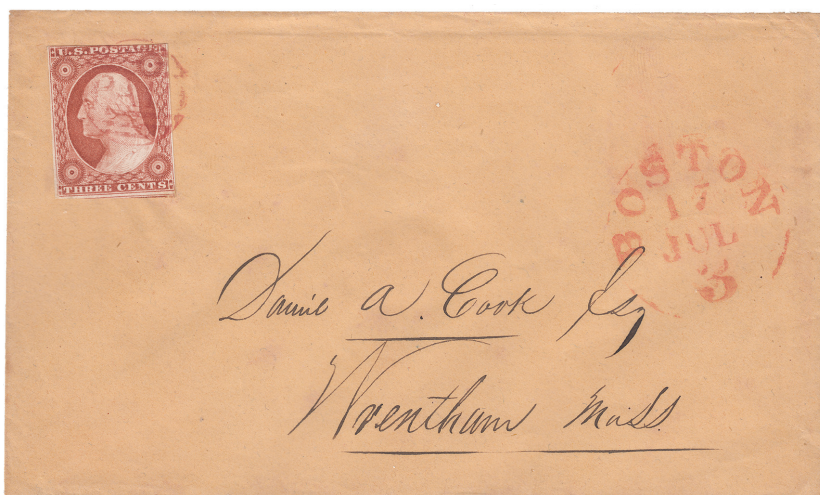 U.S. POSTAGE
THREE CENTS
BOSTON
17
JUL
3
Danie A. Cook Esq
Wrentham Mass.